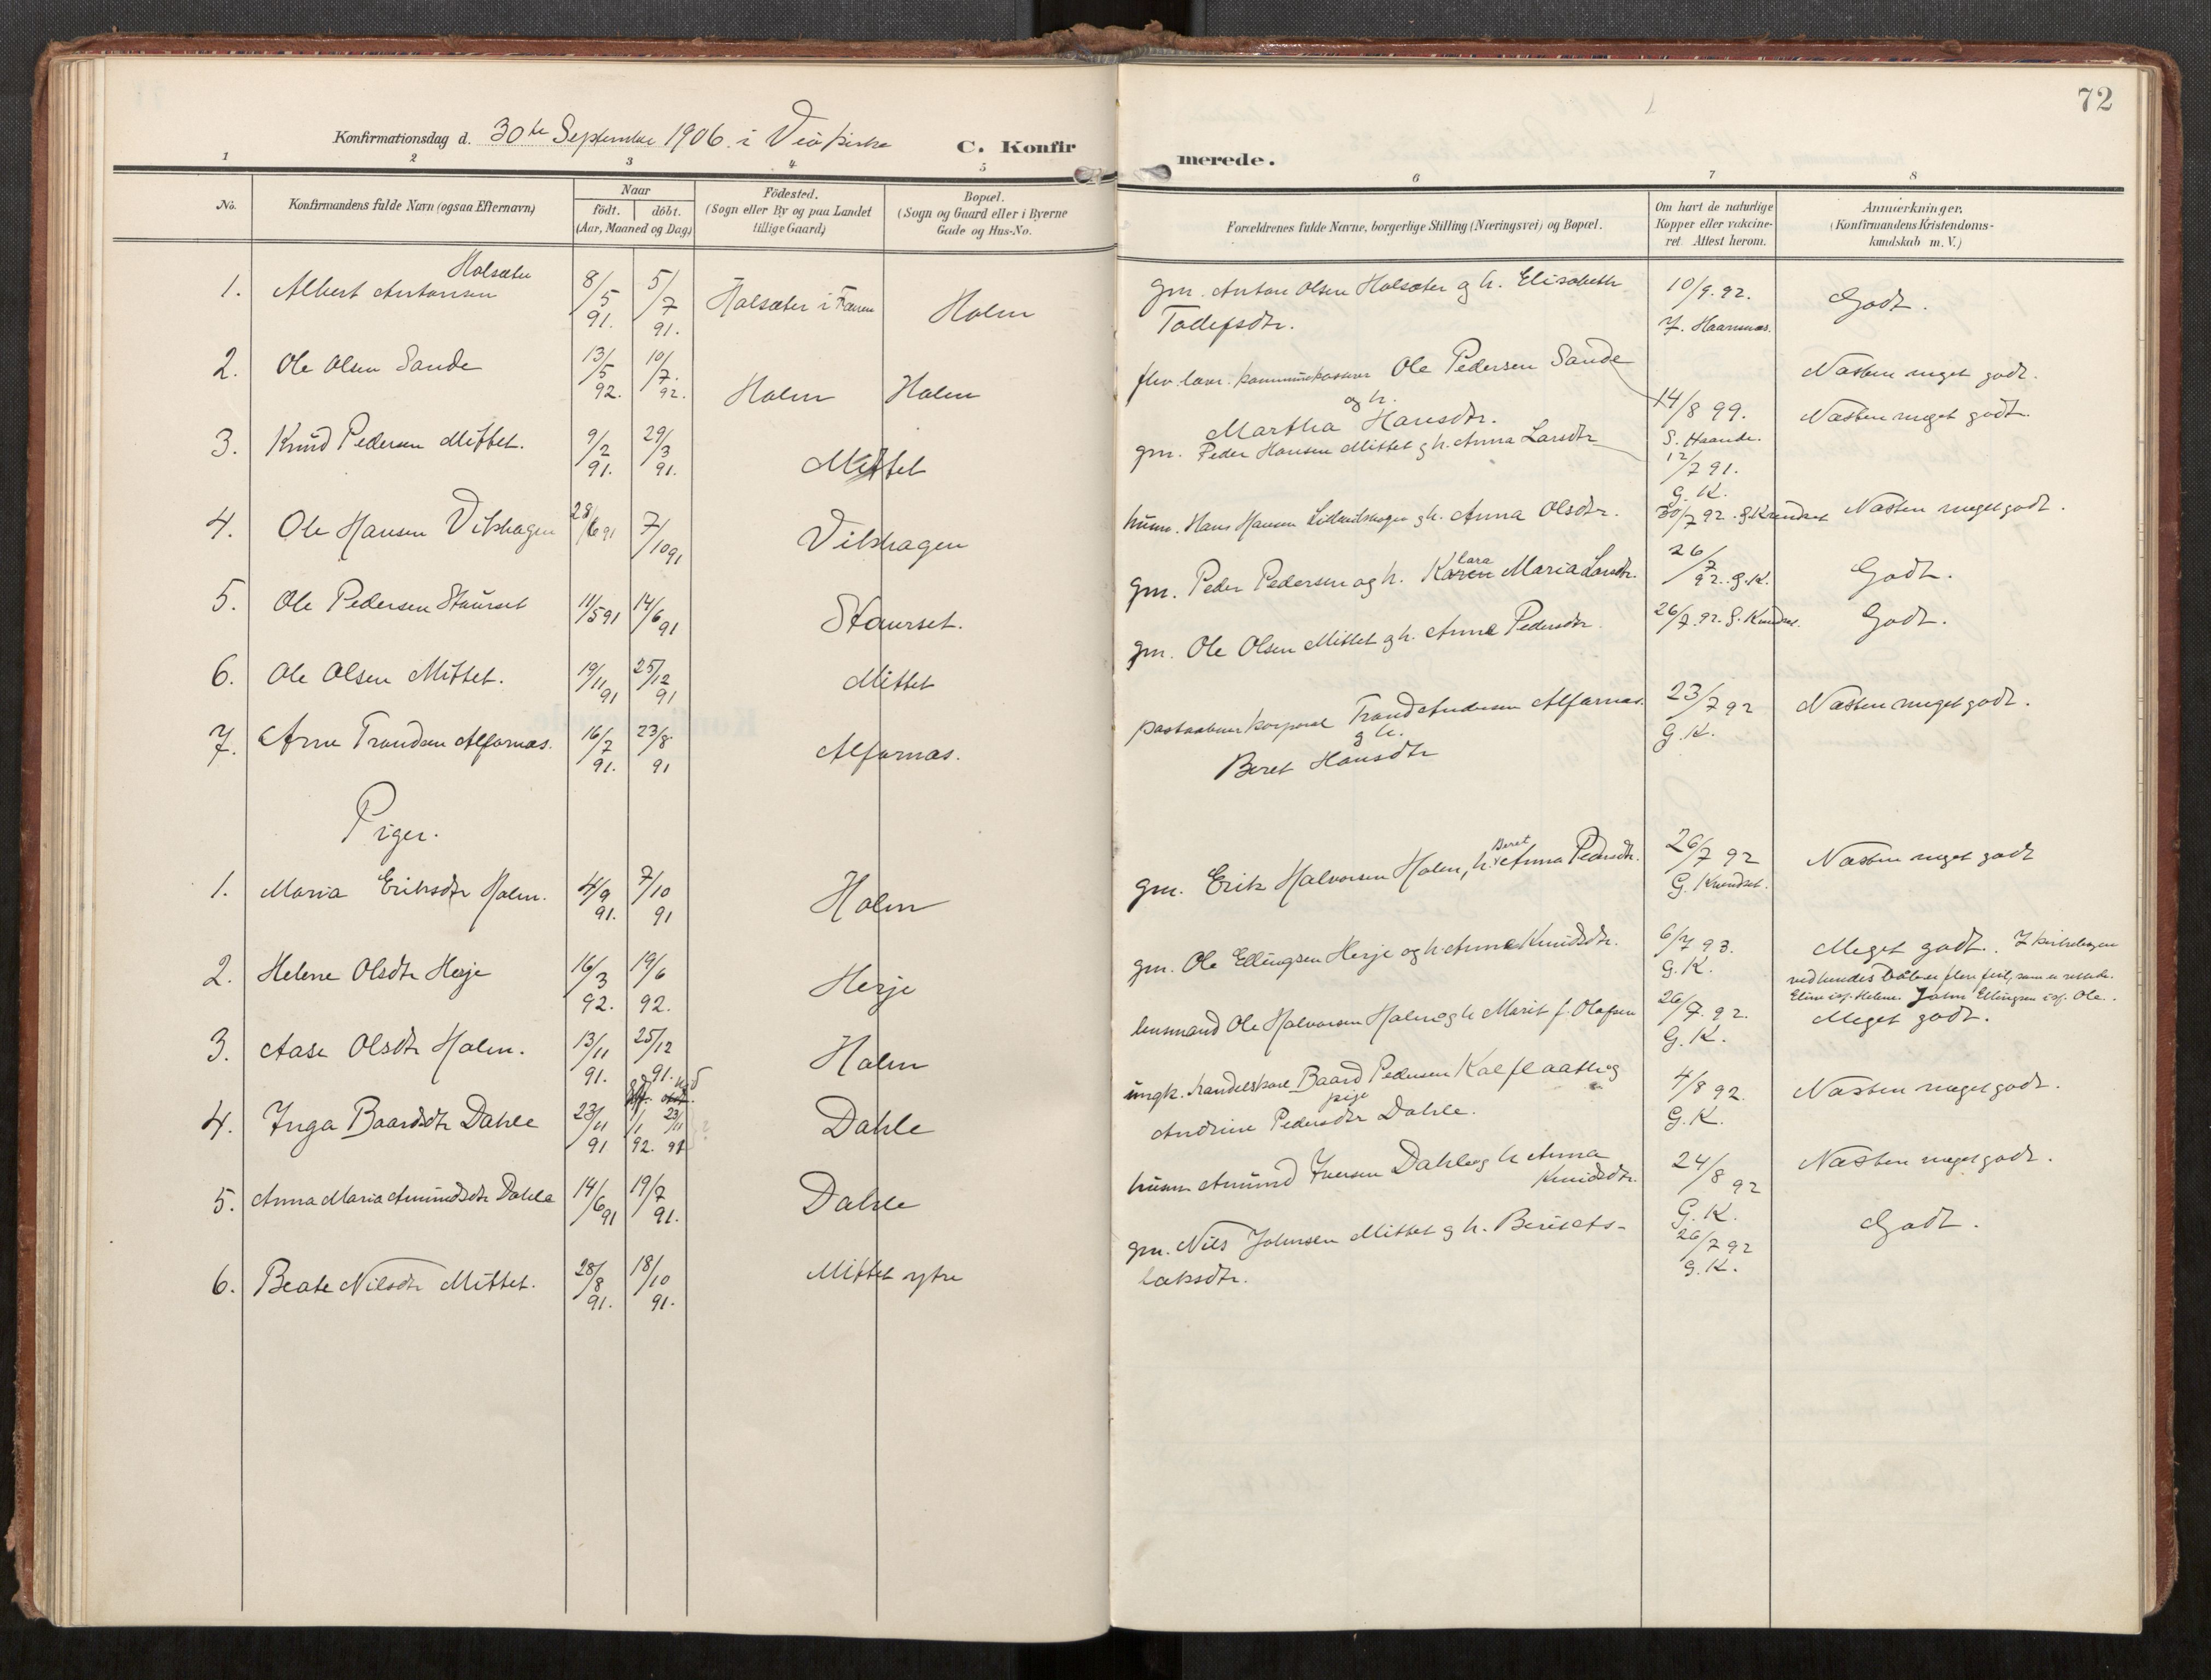 72
Konfirmationsdag d. 30te September 1906 i Veö kirke
C. Konfirmerede.
1 2 3 4 5 6 7 8
No.
Konfirmandens fulde Navn (ogsaa Efternavn)
Naar
födt. döbt.
(Aar, Maaned og Dag)
Födested.
(Sogn eller By og paa Landet
tillige Gaard)
Bopæl.
(Sogn og Gaard eller i Byerne
Gade og Hus-No.
Forældrenes fulde Navne, borgerlige Stilling (Næringsvei) og Bopæl.
Om havt de naturlige
Kopper eller vakcine-
ret. Attest herom.
Anmærkninger.
(Konfirmandens Kristendoms-
kundskab m. V.)
1. Albert Antonsen Holsæter 8/5 91. 5/7 91. Holsæter i Fannen Holm gm. Anton Olsen Holsæter og h. Elisabeth 10/9. 92. Godt.
Tollefsdtr. J. Haarnæs.
2. Ole Olsen Sande 13/5 92. 10/7. 92. Holm Holm Ole Pedersen Sande 14/8 99. Næsten meget godt.
og h.
Martha Hansdtr. S. Haande.
3. Knud Pedersen Mittet. 9/2 91. 29/3 91. Mittet gm. Peder Hansen Mittet og h. Anna Larsdtr 12/7 91. Næsten meget godt.
G. K.
4. Ole Hansen Vikshagen 28/6 91 7/10 91 Vikshagen husm. Hans Hansen og h. Anna Olsdtr. 30/7 92. G. Knudset Næsten meget godt.
5. Ole Pedersen Staurset 11/5 91 14/6 91 Staurset. gm. Peder Pedersen og h. Karen Lara Maria Larsdtr. 26/7 92. G. K. Godt.
6. Ole Olsen Mittet. 19/11 91 25/12 91 Mittet gm. Ole Olsen Mittet og h. Anne Pedersdtr. 26/7. 92. G. Knudset. Godt.
7. Arne Trondsen Alfarnæs. 16/7 91. 23/8 91 Alfarnæs. postaabner korporal Trond Andersen Alfarnæs. 23/7 92 Næsten meget godt.
og h.
Beret Hansdtr G. K.
Piger.
1. Maria Eriksdtr Holm. 4/9 91. 7/10 91 Holm gm. Erik Halvorsen Holm, h. Beret Anna Pedersdtr. 26/7 92 Næsten meget godt
G. Knudset.
2. Helene Olsdtr Herje 16/3 92. 19/6 92. Herje gm. Ole Ellingsen Herje og h. Anne Knudsdtr. 6/7 93. Meget godt. I kirkebogen
G. K. ved hendes daab er flere feil, som er rettede.
Eline isf. Helene. John Ellingsen isf. Ole.
3. Aase Olsdtr Holm. 13/11 91. 25/12 91. Holm lensmand Ole Halvorsen Holm og h Marit f. Olafsen 26/7. 92. Meget godt.
G. K.
4. Inga Baardsdtr Dahle 23/11 91 1/1 92. 23/11 91 Dahle ungk. handelskarl Baard Pedersen Kalflaatt og 4/8 92. Næsten meget godt.
pige
Andrine Pedersdtr Dahle. G. K.
5. Anna Maria Amundsdtr Dahle 14/6 91 19/7 91. Dahle husm Amund Iversen Dahle og h Anna 24/8 92 Næsten meget godt.
Knudsdtr. G. K.
6. Beate Nilsdtr Mittet. 28/8 91. 18/10 91. Mittet ytre gm. Nils Johnsen Mittet og h. Berit As- 26/7 92 Godt.
laksdtr. G. K.